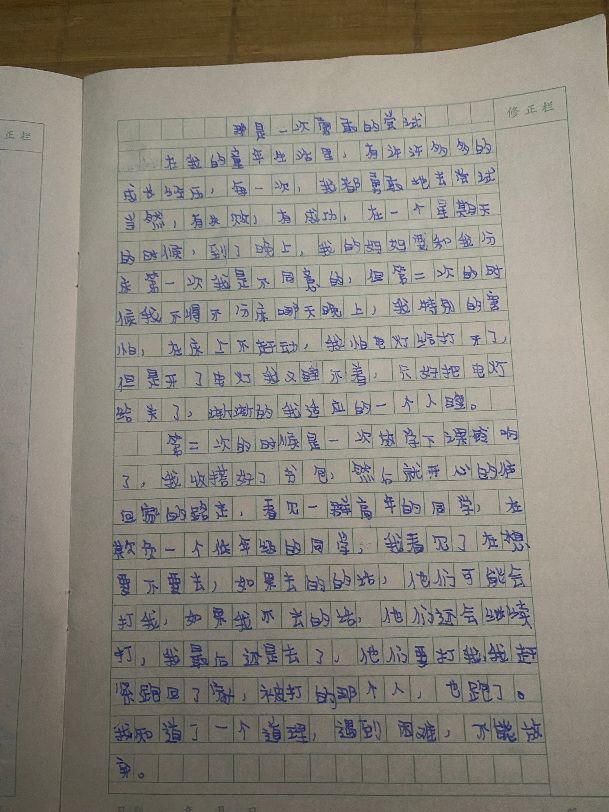 正栏
修正栏
那是一次勇敢的尝试
在我的童年生活里，有许许多多的
成长经历，每一次，我都勇敢地去尝试
当然，有失败，有成功，在一个星期天
的时候，到了晚上，我的妈妈要和我分
床第一次我是不同意的，但第二次的时
候我不得不分床哪天晚上，我特别的害
怕，在床上不敢动，我怕电灯给打开了，
但是开了电灯我又睡不着，只好把电灯
给关了，渐渐的我适应的一个人睡。
第二次的时候是一次放学下课铃响
了，我收拾好了书包，然后就开心的往
回家的路走，看见一群高年的同学，在
欺负一个低年级的同学，我看见了在想
要不要去，如果去的的话，他们可能会
打我，如果我不去的话，他们还会继续
打，我最后还是去了，他们要打我，我赶
紧跑回了家，被打的那个人，也跑了。
我知道了一个道理，遇到困难，不能放
弃。
年 月 日